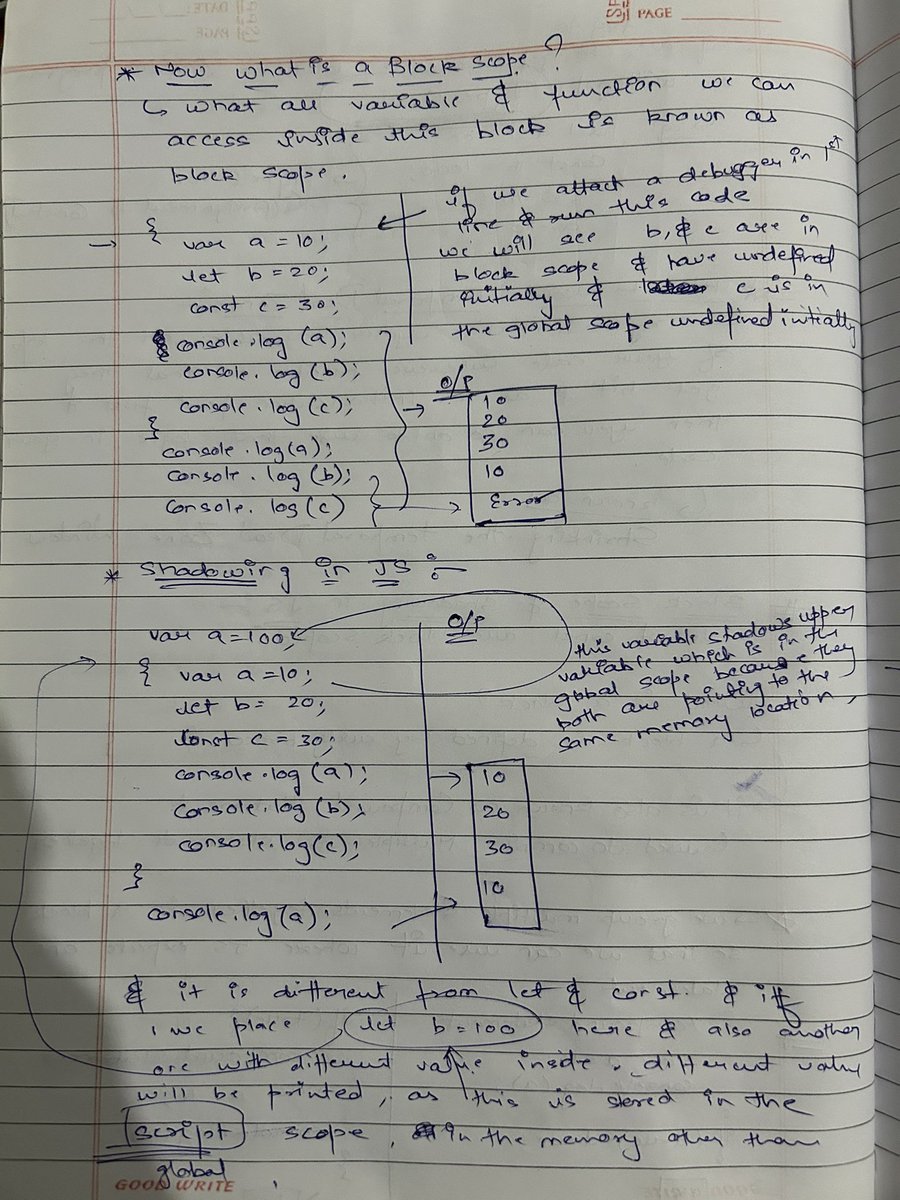 PAGE
* Now what is a Block Scope ?
↳ what all variable & function we can
access inside this block is known as
block scope.
if we attach a debugger in 1st
line & run this code
we will see b, & c are in
block scope & have undefined
initially & c is in
the global scope undefined initially
→ {
var a = 10;
let b = 20;
const c = 30;
console.log (a);
console.log (b);
console.log (c);
}
console.log(a);
console.log (b);
console.log (c)
O/P
10
20
30
10
Error
* Shadowing in JS :-
var a = 100;
{ var a = 10;
let b = 20;
const c = 30;
console.log (a);
console.log (b);
console.log(c);
}
console.log(a);
O/P
this variable shadows upper
variable which is in the
global scope because they
both are pointing to the
same memory location,
→ 10
20
30
10
& it is different from let & const. & if
we place let b = 100 here & also another
one with different value inside. different value
will be printed, as this is stored in the
script scope, in the memory other than
global
GOOD WRITE